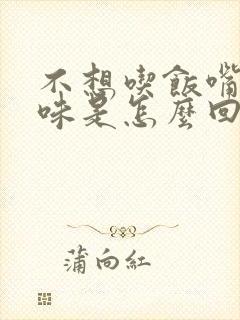 不想喫飯嘴
味是怎麼回
蒲向紅